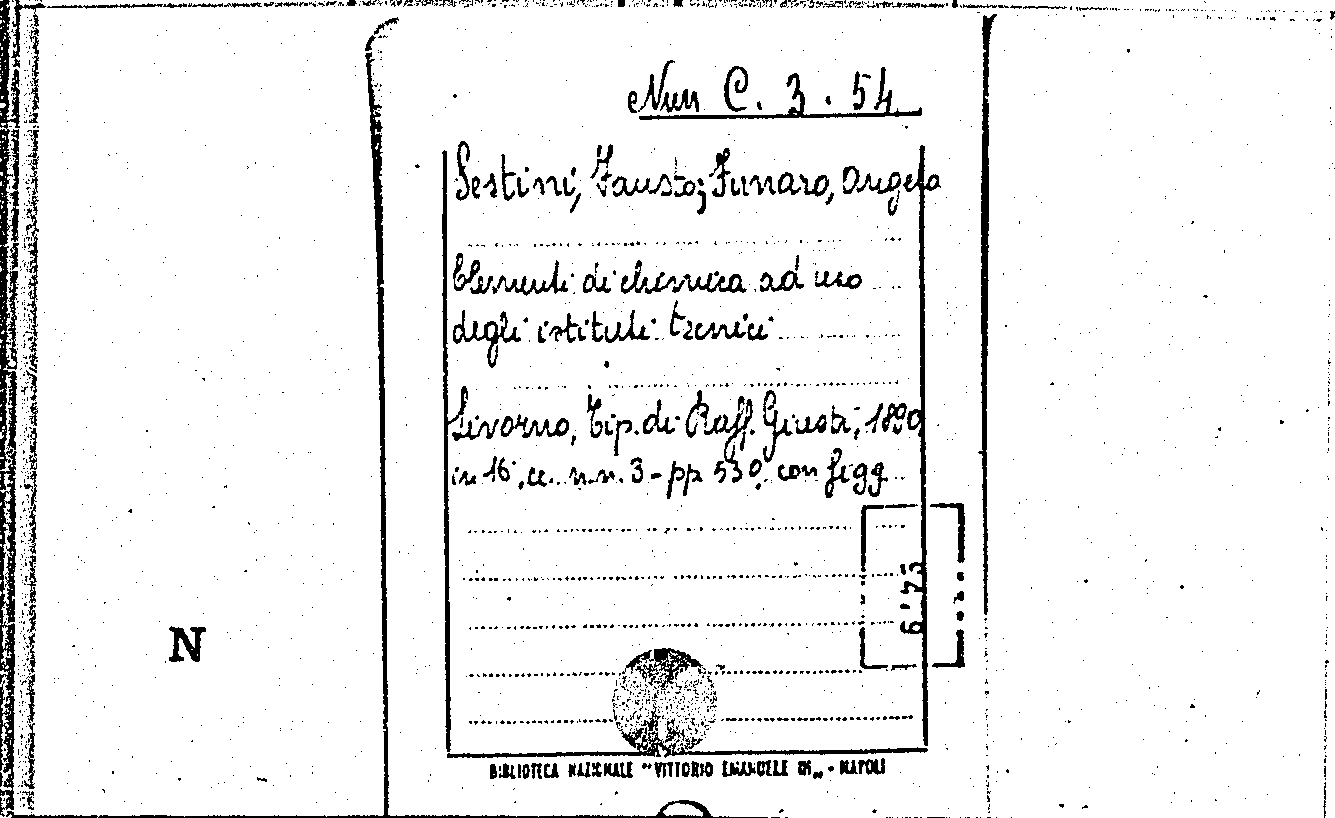 Nun C. 3. 54
Sestini, Fausto; Funaro, Angelo
Elementi di chimica ad uso
degli istituti tecnici
Livorno, Tip. di Raff. Giusti, 1890,
in 16°, cc. n.n. 3 - pp 530, con figg
N
BIBLIOTECA NAZIONALE "VITTORIO EMANUELE III" - NAPOLI